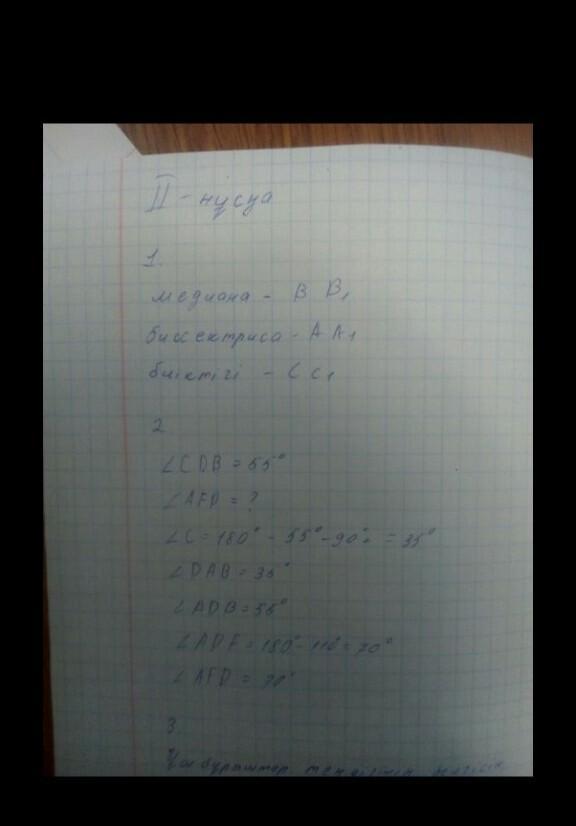 II - нұсқа
1.
медиана - B B₁
биссектриса - A A₁
биіктігі - C C₁
2
∠CDB = 55°
∠AFD = ?
∠C = 180° - 55° - 90° = 35°
∠DAB = 35°
∠ADB = 55°
∠ADF = 180° - 110° = 70°
∠AFD = 70°
3.
Үшбұрыштар теңдігінің